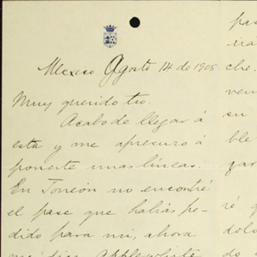 Mexico Agosto 14 de 1905
Muy querido tio.
Acabo de llegar á
esta y me apresuro á
ponerte unas lineas.
En Torreón no encontré
el pase que habías pe-
dido para mi, ahora
Applewhite